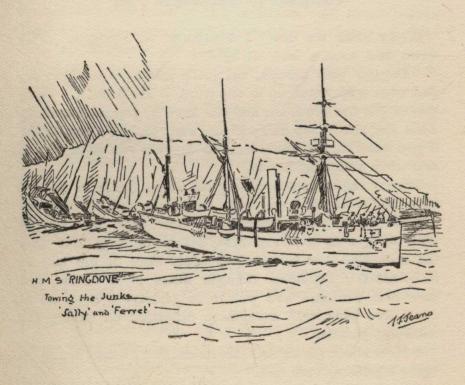 H M S "RINGDOVE"
Towing the Junks
'Sally' and 'Ferret'